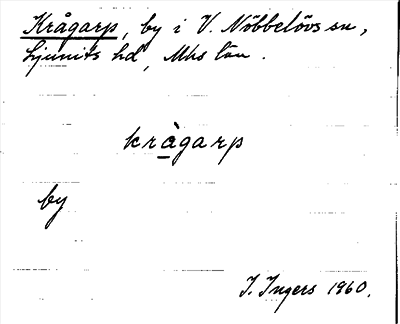 Krågarp, by i V. Nöbbelövs sn,
Ljunits hd, Mhs län.
kràgarp
by
I. Ingers 1960.